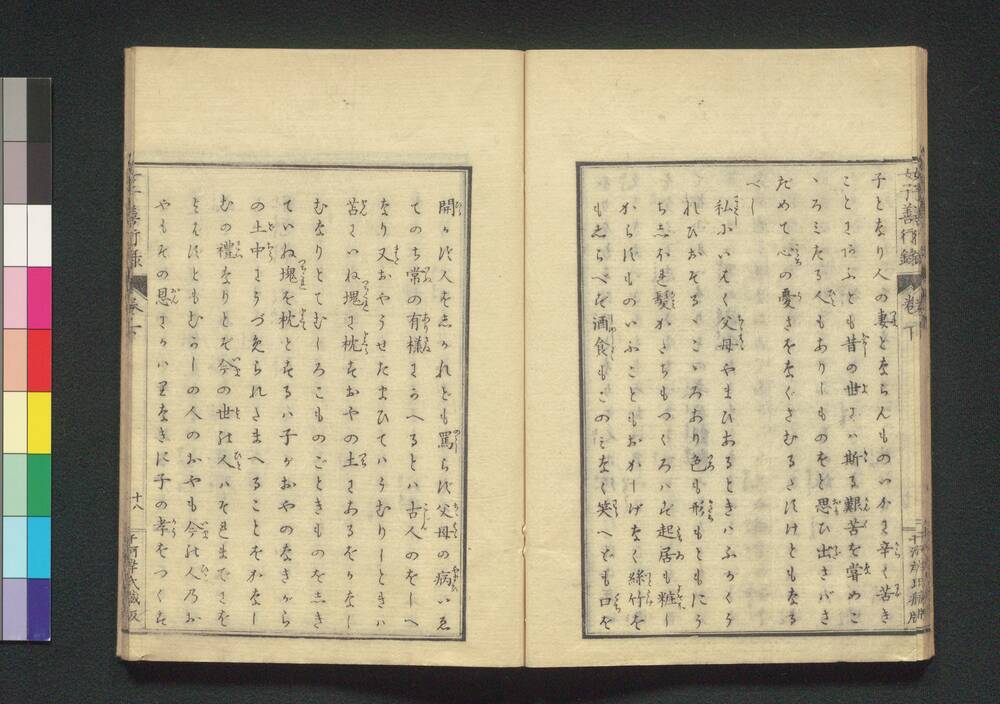 子となり人の妻とならんものいかに辛く苦き
ことにあふとも昔の世には斯る艱苦を嘗めこ
ころみたる人もありしものをと思ひ出さバさ
だめて心の憂きをなぐさむるたすけともなる
べし
私にいはく父母やまひあるときハふかくう
れひおそるゝこゝろあり色も形もともにう
ちしほれ髪かたちもつくろハず起居も粧し
からずものいふこともおかしげなく絲竹を
もしらべず酒食もこのミなく笑へども口を
開かず人をしかれども罵らず父母の病いゑ
てのち常の有様にかへるとハ古人のをしへ
なり又おやうせたまひてハかむりしときハ
苫にいね塊に枕すおやの土にあるをかなし
むなりとてむしろこものごときものをしき
ていね塊を枕とするハ子がおやのなきがら
の土中にうづめられたまへることをかなし
むの禮なりとぞ今の世の人ハそれまでにを
よばずともむかしの人のおやも今の人のお
やもその恩にかハりなきに子の孝をつくす
女子善行録
巻下
十八